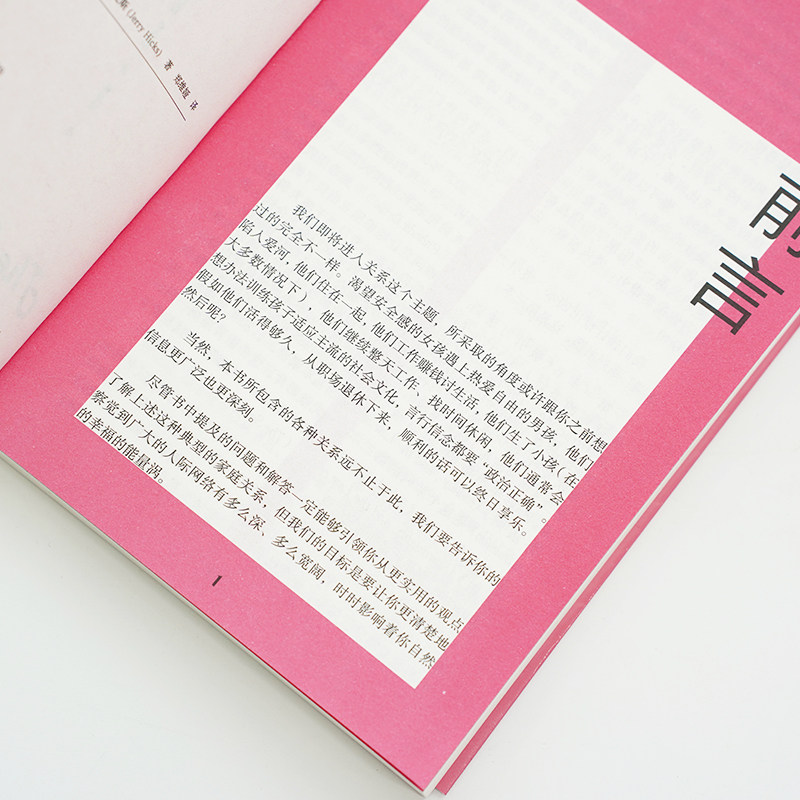 斯(Jerry Hicks) 著 郑维娅 译
前言
我们即将进人关系这个主题，所采取的角度或许跟你之前想
过的完全不一样。渴望安全感的女孩遇上热爱自由的男孩，他们
陷人爱河，他们住在一起，他们工作赚钱讨生活，他们生了小孩（在
大多数情况下），他们继续整天工作、找时间休闲，他们通常会
想办法训练孩子适应主流的社会文化，言行信念都要“政治正确”。
假如他们活得够久，从职场退休下来，顺利的话可以终日享乐。
然后呢？
当然，本书所包含的各种关系远不止于此，我们要告诉你的
信息更广泛也更深刻。
尽管书中提及的问题和解答一定能够引领你从更实用的观点
了解上述这种典型的家庭关系，但我们的目标是要让你更清楚地
察觉到广大的人际网络有多么深、多么宽阔，时时影响着你自然
的幸福的能量涡。
1